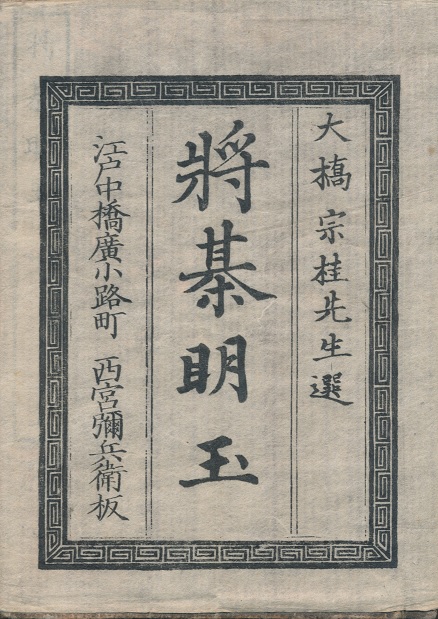 大橋宗桂先生選
將棊明玉
江戸中橋廣小路町 西宮彌兵衛板